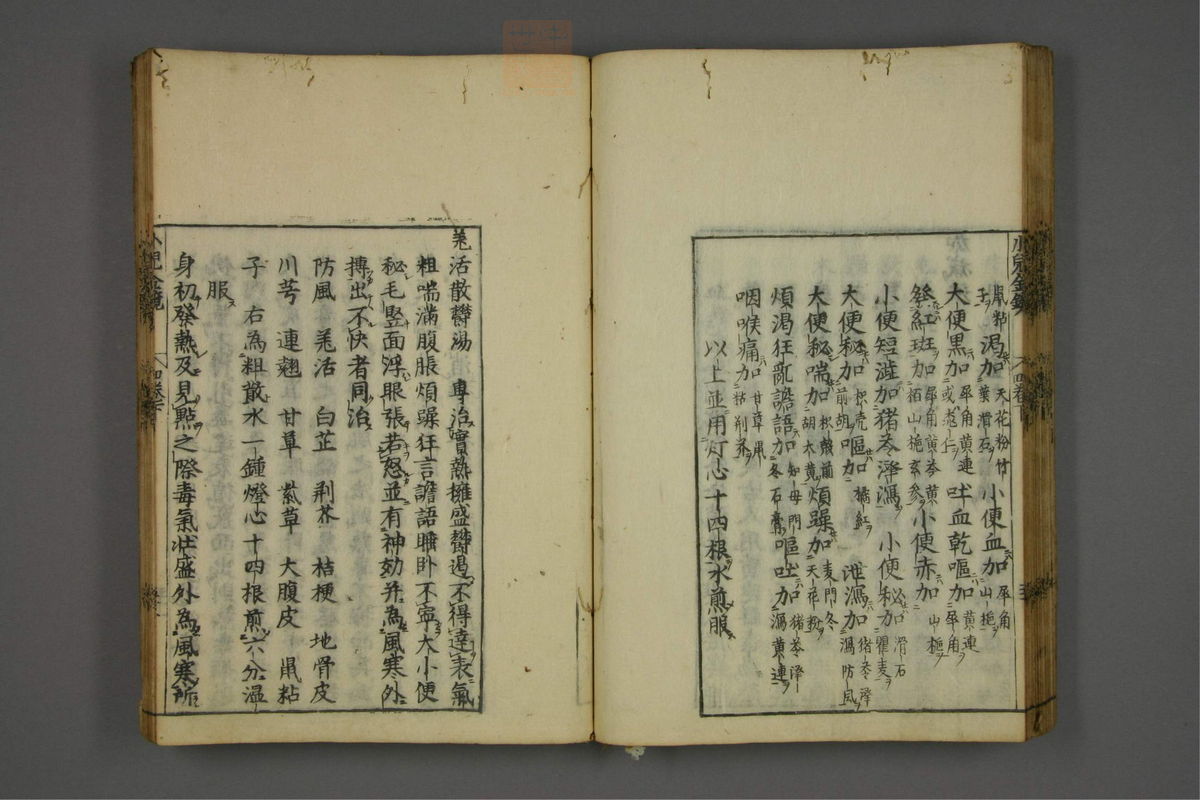 鼠粘 渇加 天花粉竹葉滑石 小便血加 犀角山梔
大便黒加 犀角黄連 吐血乾嘔加 黄連犀角
紅斑加 犀角黄芩黄栢山梔玄参 小便赤加 山梔
小便短澁加猪苓澤瀉 小便秘加 滑石瞿麦
大便秘加 枳壳前胡 嘔加 橘紅 泄瀉加 猪苓澤瀉防風
大便秘喘加 枳殻前胡大黄 煩躁加 麦門冬天花粉
煩渇狂乱譫語加 知母門冬石膏 嘔吐加 猪苓澤瀉黄連
咽喉痛加 甘草鼠粘荆芥
以上並用灯心十四根水煎服
小児全鏡
四卷下
羗活散欝湯 專治實熱擁盛欝遏不得達表氣
粗喘滿腹脹煩躁狂言譫語睡卧不寧大小便
秘毛竪面浮眼張若怒並有神効并為風寒外
搏出不快者同治
防風 羗活 白芷 荆芥 桔梗 地骨皮
川芎 連翹 甘草 紫草 大腹皮 鼠粘
子 右為粗散水一鍾燈心十四根煎六分温
服
身初發熱及見點之際毒氣壯盛外為風寒所